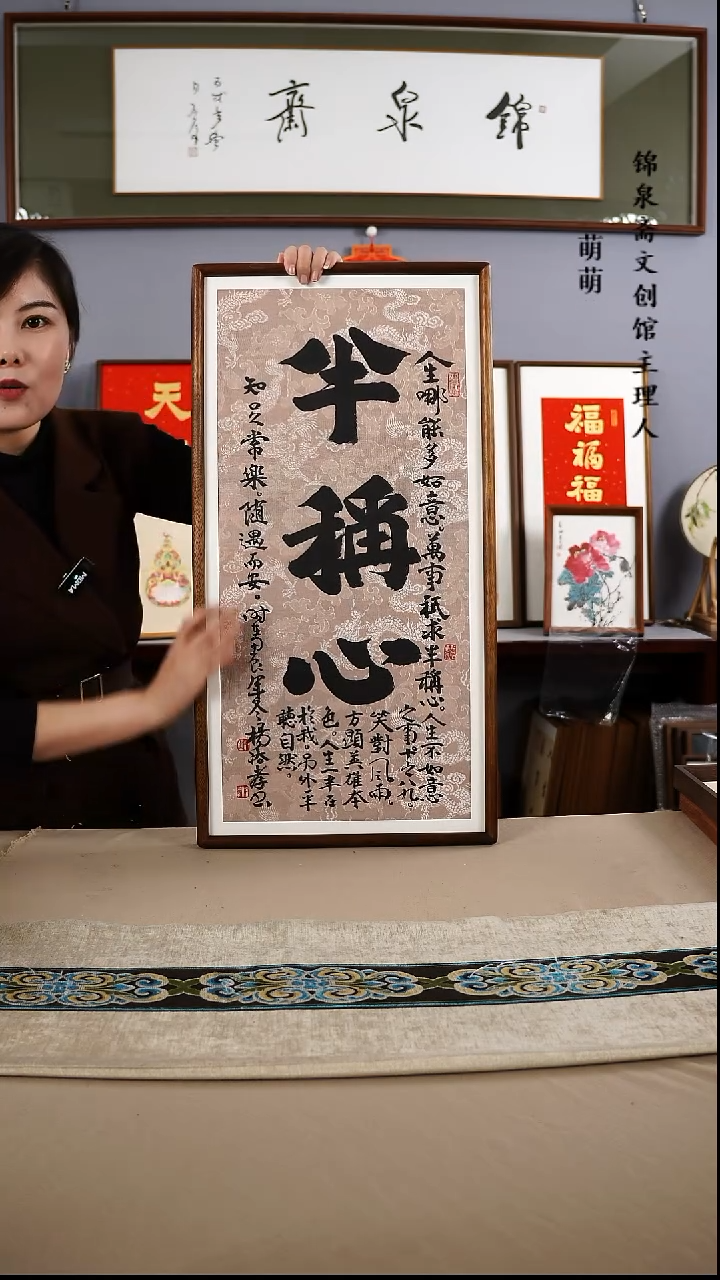 錦泉齋
锦泉斋文创馆主理人
萌萌
半稱心
人生哪能多如意。萬事祇求半稱心。人生不如意
之事十之八九。
笑對風雨。
方顯英雄本
色。人生一半在
於我。另外半
聽自然。
知足常樂。隨遇而安。
天
福福福